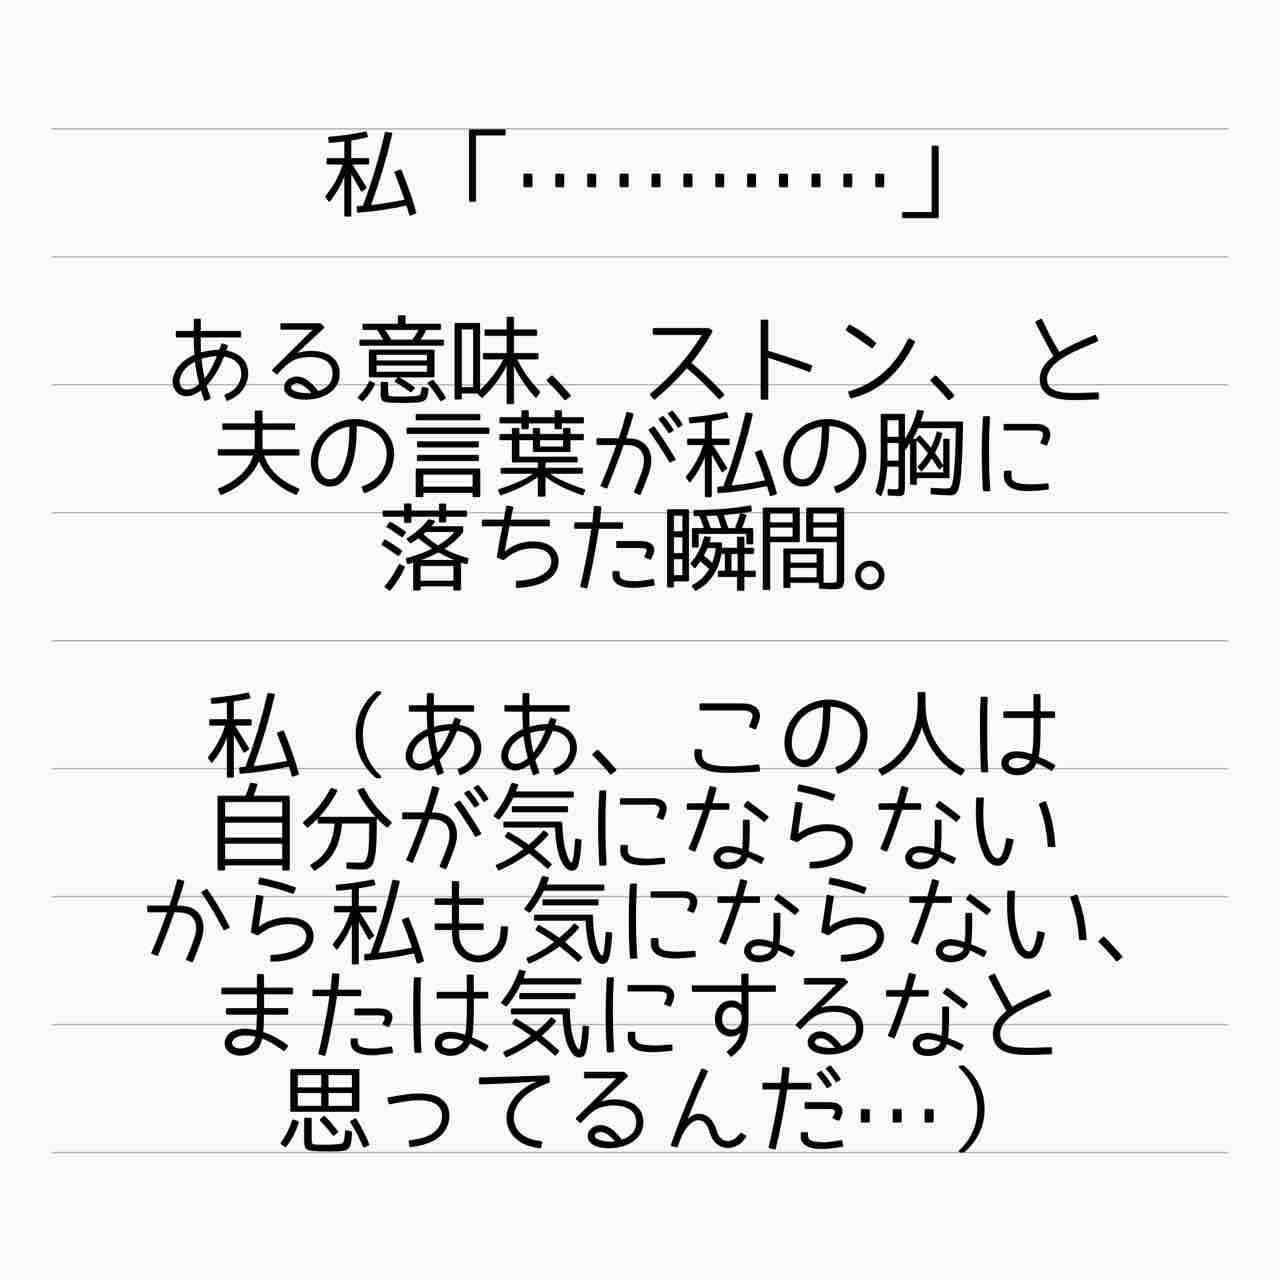 私「…………」
ある意味、ストン、と
夫の言葉が私の胸に
落ちた瞬間。
私（ああ、この人は
自分が気にならない
から私も気にならない、
または気にするなと
思ってるんだ…）